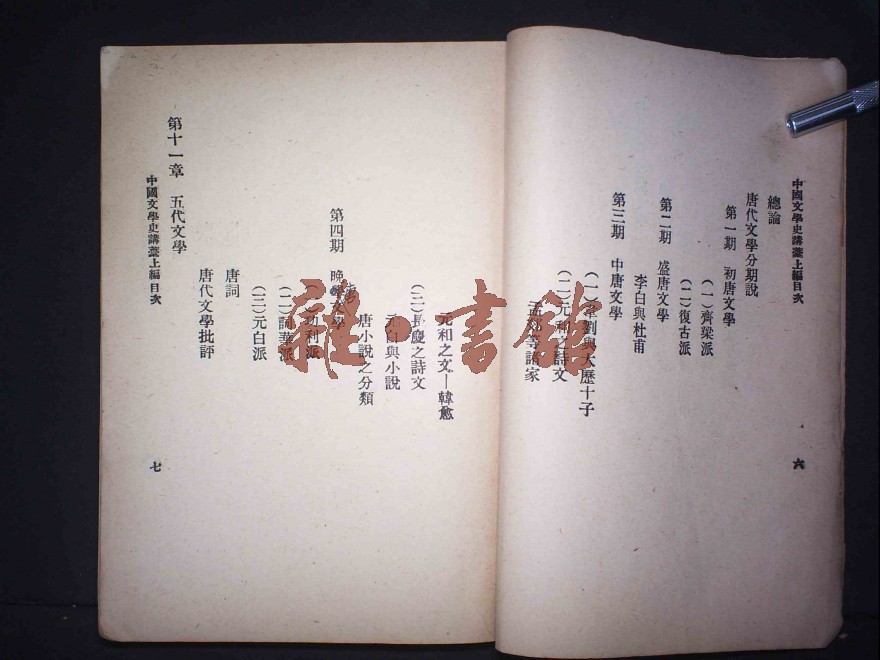 中國文學史講義上編目次
總論
唐代文學分期說
第一期 初唐文學
(一)齊梁派
(二)復古派
第二期 盛唐文學
李白與杜甫
第三期 中唐文學
(一)韋劉與大歷十子
(二)元和之詩文
孟郊等諸家
六
元和之文—韓愈
(三)長慶之詩文
元白與小說
唐小說之分類
第四期 晚唐文學
(一)功利派
(二)詞華派
(三)元白派
唐詞
唐代文學批評
第十一章 五代文學
中國文學史講義上編目次
七
雜·書館